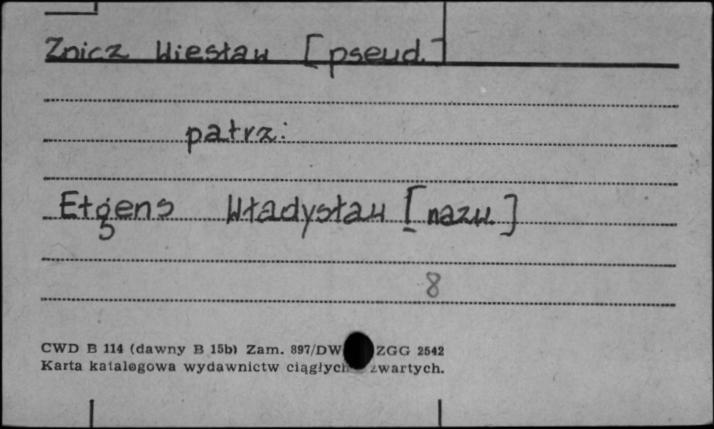 Znicz Wiesław [pseud.]
patrz:
Etgens Władysław [nazw.]
8
CWD B 114 (dawny B 15b) Zam. 897/DW ZGG 2542
Karta katalogowa wydawnictw ciągłych zwartych.